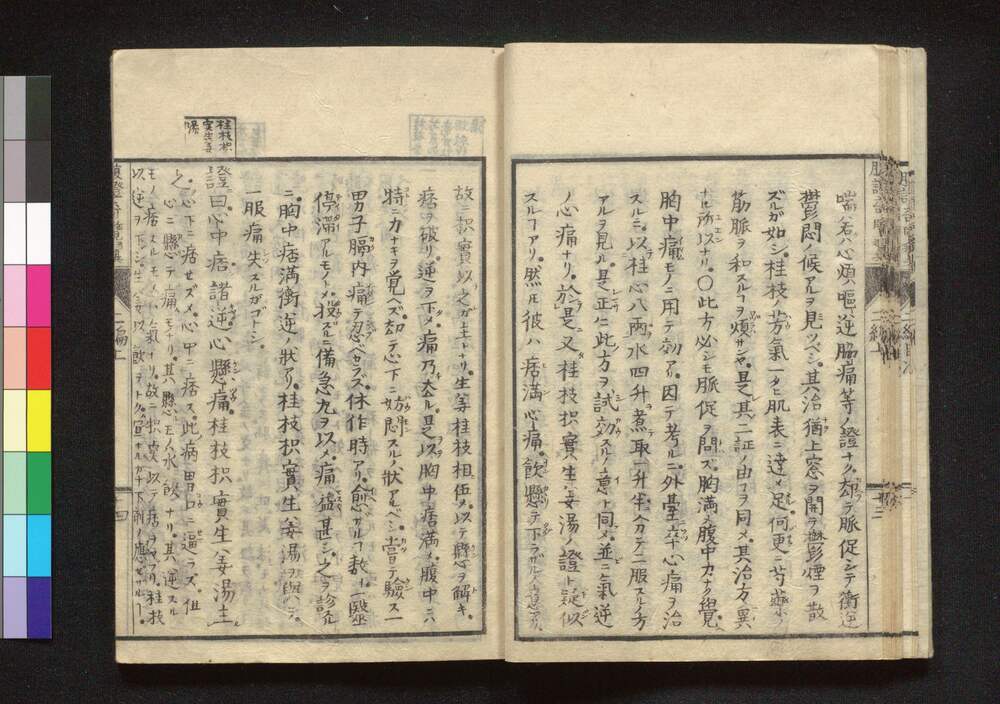 喘若ハ心煩嘔逆脇痛等ノ證ナク却テ脈促シテ衝逆
鬱悶ノ候アルヲ見ツベシ其治猶上窓ヲ開テ鬱煙ヲ散
ズルガ如シ桂枝ノ芳氣一タビ肌表ニ達メ足何更ニ芍藥ノ
筋脈ヲ和スルヿヲ煩サンヤ是其二証ノ由ヿヲ同メ其治方異
ナル所以ナリ〇此方必シモ脈促ヲ問ズ胸満メ腹中力ナク覺
胸中痛モノニ用テ効アリ因テ考ルニ外臺卒心痛ヲ治
スルニ以桂心八兩水四升煮取一升半分テ二服スル方
アルヲ見ル是正ニ此方ヲ試効スルノ意ト同メ並ニ氣逆
ノ心痛ナリ於是又桂枝枳實生姜湯ノ證ト疑似
スルヿアリ然𪜈彼ハ痞満心痛飲懸テ下ラザルノ意アリ
故ニ枳實以之ガ主トナリ生等桂枝相伍メ以テ懸ヲ解キ
痞ヲ破リ逆ヲ下メ痛乃太ル是以胸中痞満メ腹中ニハ
特ニ力ナキヲ覺ヘズ却テ心下ニ妨悶スルノ狀アルベシ嘗テ驗ス一
男子膈内痛テ忍ベカラズ休作時アリ愈ガルヿ数月一醫
停滞アルモノトメ投ズルニ備急丸ヲ以メ痛益甚シ之ヲ診スル
ニ胸中痞満衝逆ノ狀アリ桂枝枳實生姜湯ヲ與ルニ
一服痛失スルガゴトシ
桂枝枳
實生姜
湯
證曰心中痞諸逆心懸痛桂枝枳實生姜湯主
之
心下ニ痞セズメ心中ニ痞ス此病胃口ニ逼ラズ但
心ニ懸テ痛モノナリ其懸モノハ水飲ナリ其逆スル
モノ痞スルモノハ氣ナリ故ニ枳実以テ痞ヲヤブリ桂枝
以逆ヲ下シ生姜以飲ヲトク
二編上
四